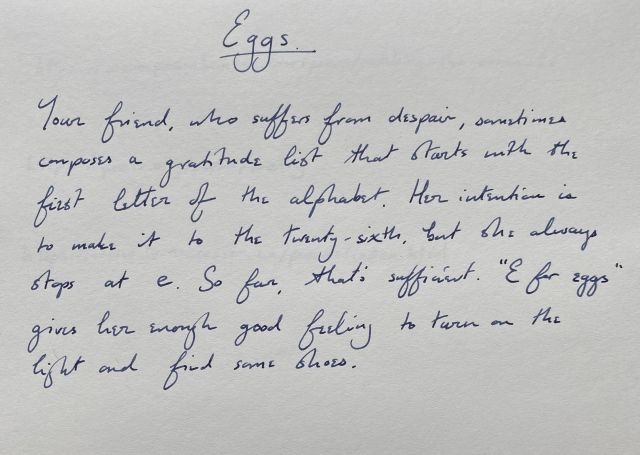 Eggs.
Your friend, who suffers from despair, sometimes
composes a gratitude list that starts with the
first letter of the alphabet. Her intention is
to make it to the twenty-sixth, but she always
stops at e. So far, that's sufficient. "E for eggs"
gives her enough good feeling to turn on the
light and find some shoes.